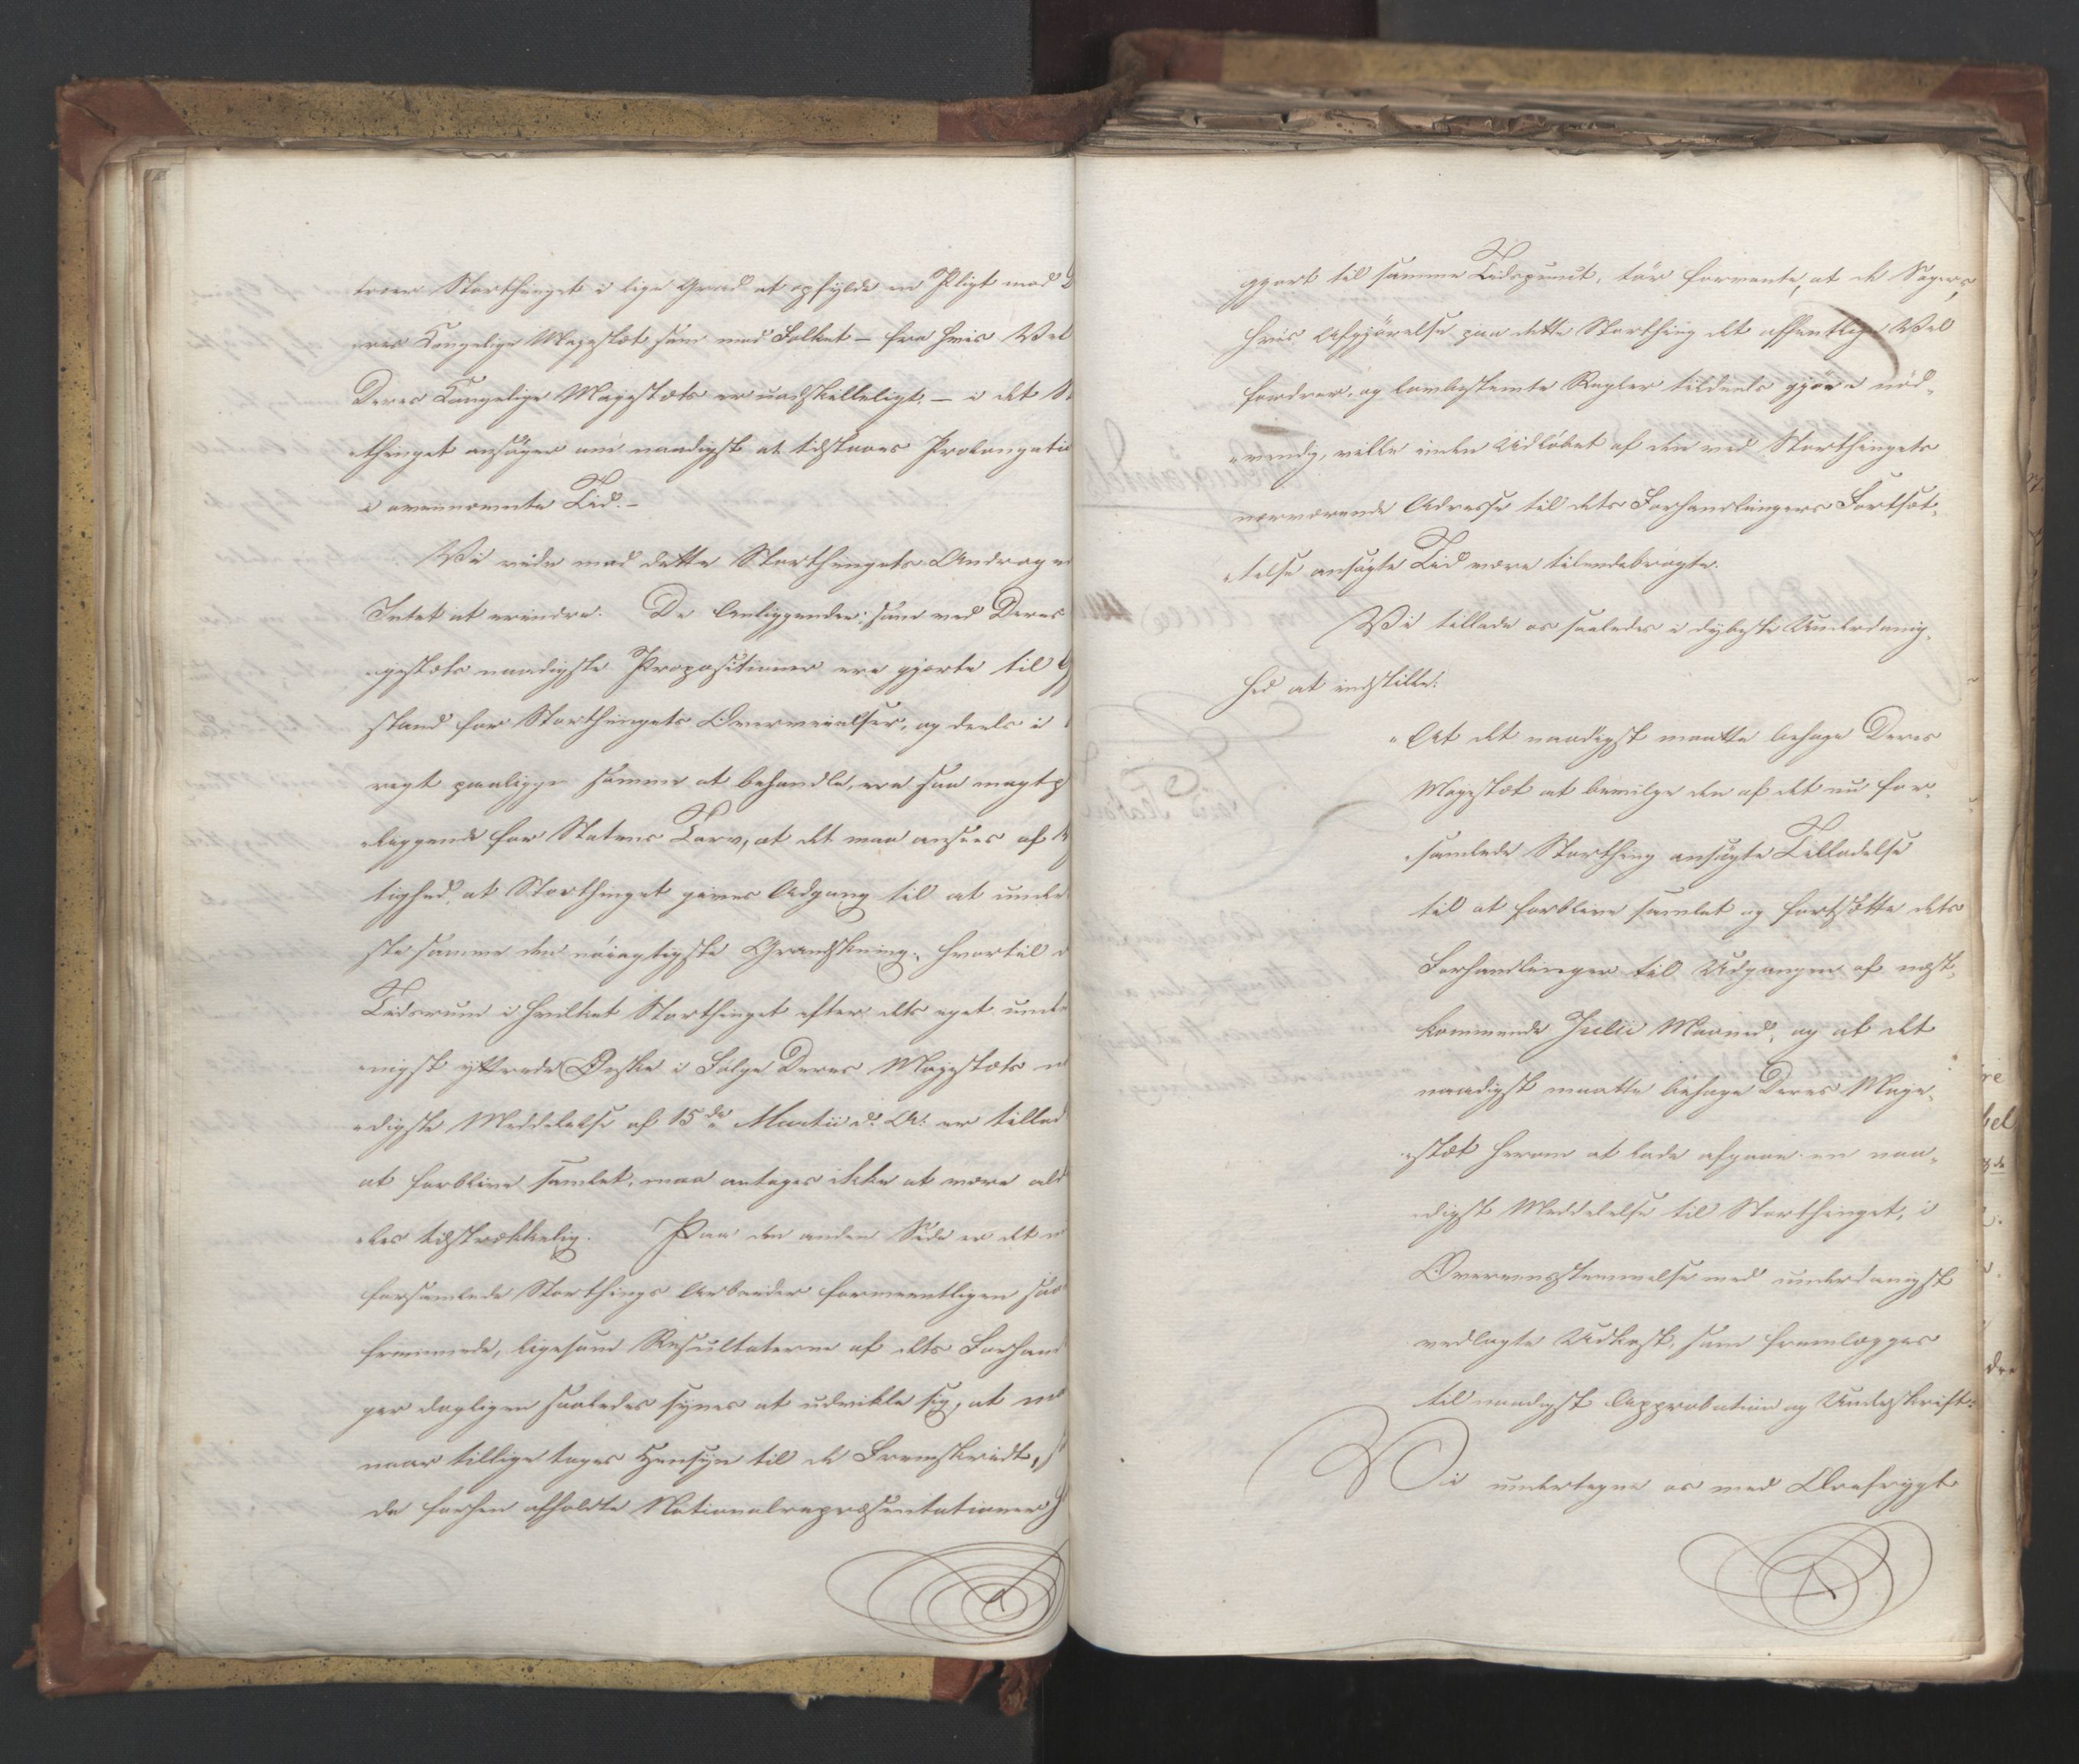 troer Storthinget i lige Grad at opfylde en Pligt mod D
eres Kongelige Majestæt som mod Folket – fra hvis Vel
Deres Kongelige Majestæts er uadskilleligt. – i det St
thinget ansøger om naadigst at tilstaaes Prolongatio
i ovennævnte Tid. –
Vi vide mod dette Storthingets Andragen
Intet at erindre. De Anliggender, som ved Deres
ajestæts naadigste Propositioner ere gjorte til G
stand for Storthingets Overveielser, og deels i
vegt paaligger samme at behandle, ere saa magtp
liggende for Statens Tarv, at det maa ansees af V
tighed, at Storthinget gives Adgang til at under
ste samme den nöiagtigste Granskning, hvortil d
Tidsrum i hvilket Storthinget efter dets eget unde
nigst yttrede Ønske i Følge Deres Majestæts n
digste Meddelelse af 15de Martii d. A. er tillad
at forblive samlet, maa antages ikke at være ald
les tilstrækkelig. Paa den anden Side er det n
forsamlede Storthings Arbeider formeentligen saa
fremmede, ligesom Resultaterne af dets Forhand
ger dagligen saaledes synes at udvikle sig, at m
naar tillige tages Hensyn til de Fremskridt, s
de forhen afholdte Nationalrepræsentationer h
gjort til samme Tidspunct, tör forvente, at de Sager,
hvis Afgjörelse paa dette Storthing det offentlige Vel
fordrer, og lovbestemte Regler tildeels gjöre nöd-
vendig, ville inden Udløbet af den ved Storthingets
nærværende Adresse til dets Forhandlingers Fortsæt-
telse ansøgte Tid være tilendebragte.
Vi tillade os saaledes i dybeste Underdanig-
hed at indstille:
"At det naadigst maatte behage Deres
Majestæt at bevilge den af det nu for-
samlede Storthing ansøgte Tilladelse
til at forblive samlet og fortsætte dets
Forhandlinger til Udgangen af næst-
kommende Julii Maaned, og at det
naadigst maatte behage Deres Maje-
stæt herom at lade afgaae en naa-
digst Meddelelse til Storthinget, i
Overeensstemmelse med underdanigst
vedlagte Udkast, som fremlægges
til naadigst Approbation og Underskrift:
Vi undertegne os med Ærefrygt